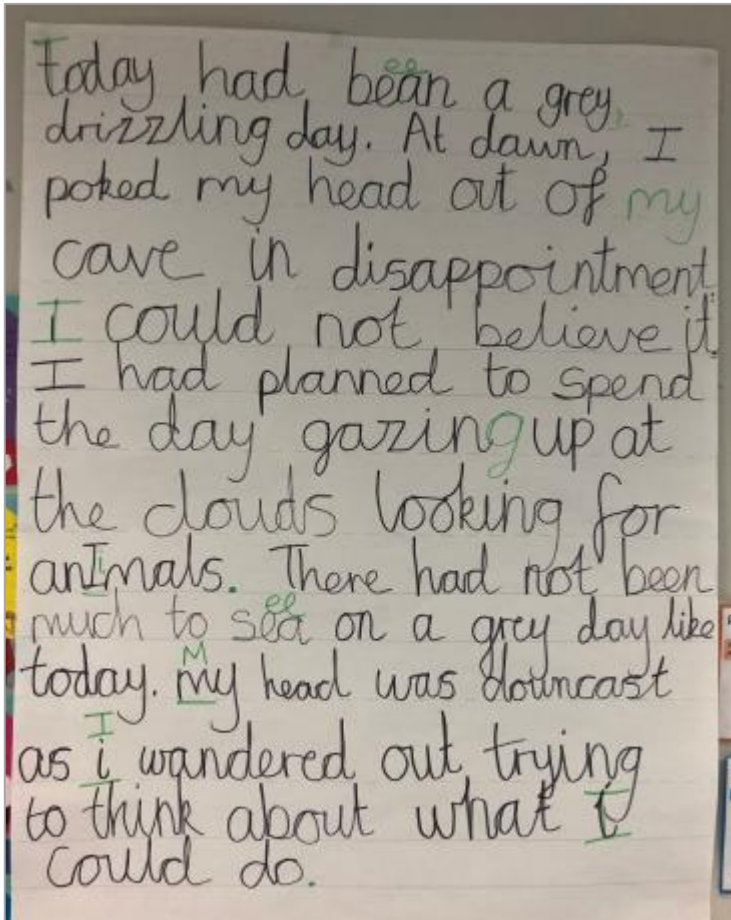 Today had been a grey,
drizzling day. At dawn, I
poked my head out of my
cave in disappointment.
I could not believe it.
I had planned to spend
the day gazing up at
the clouds looking for
anImals. There had not been
much to sea on a grey day like
today. My head was downcast
as I wandered out trying
to think about what I
could do.